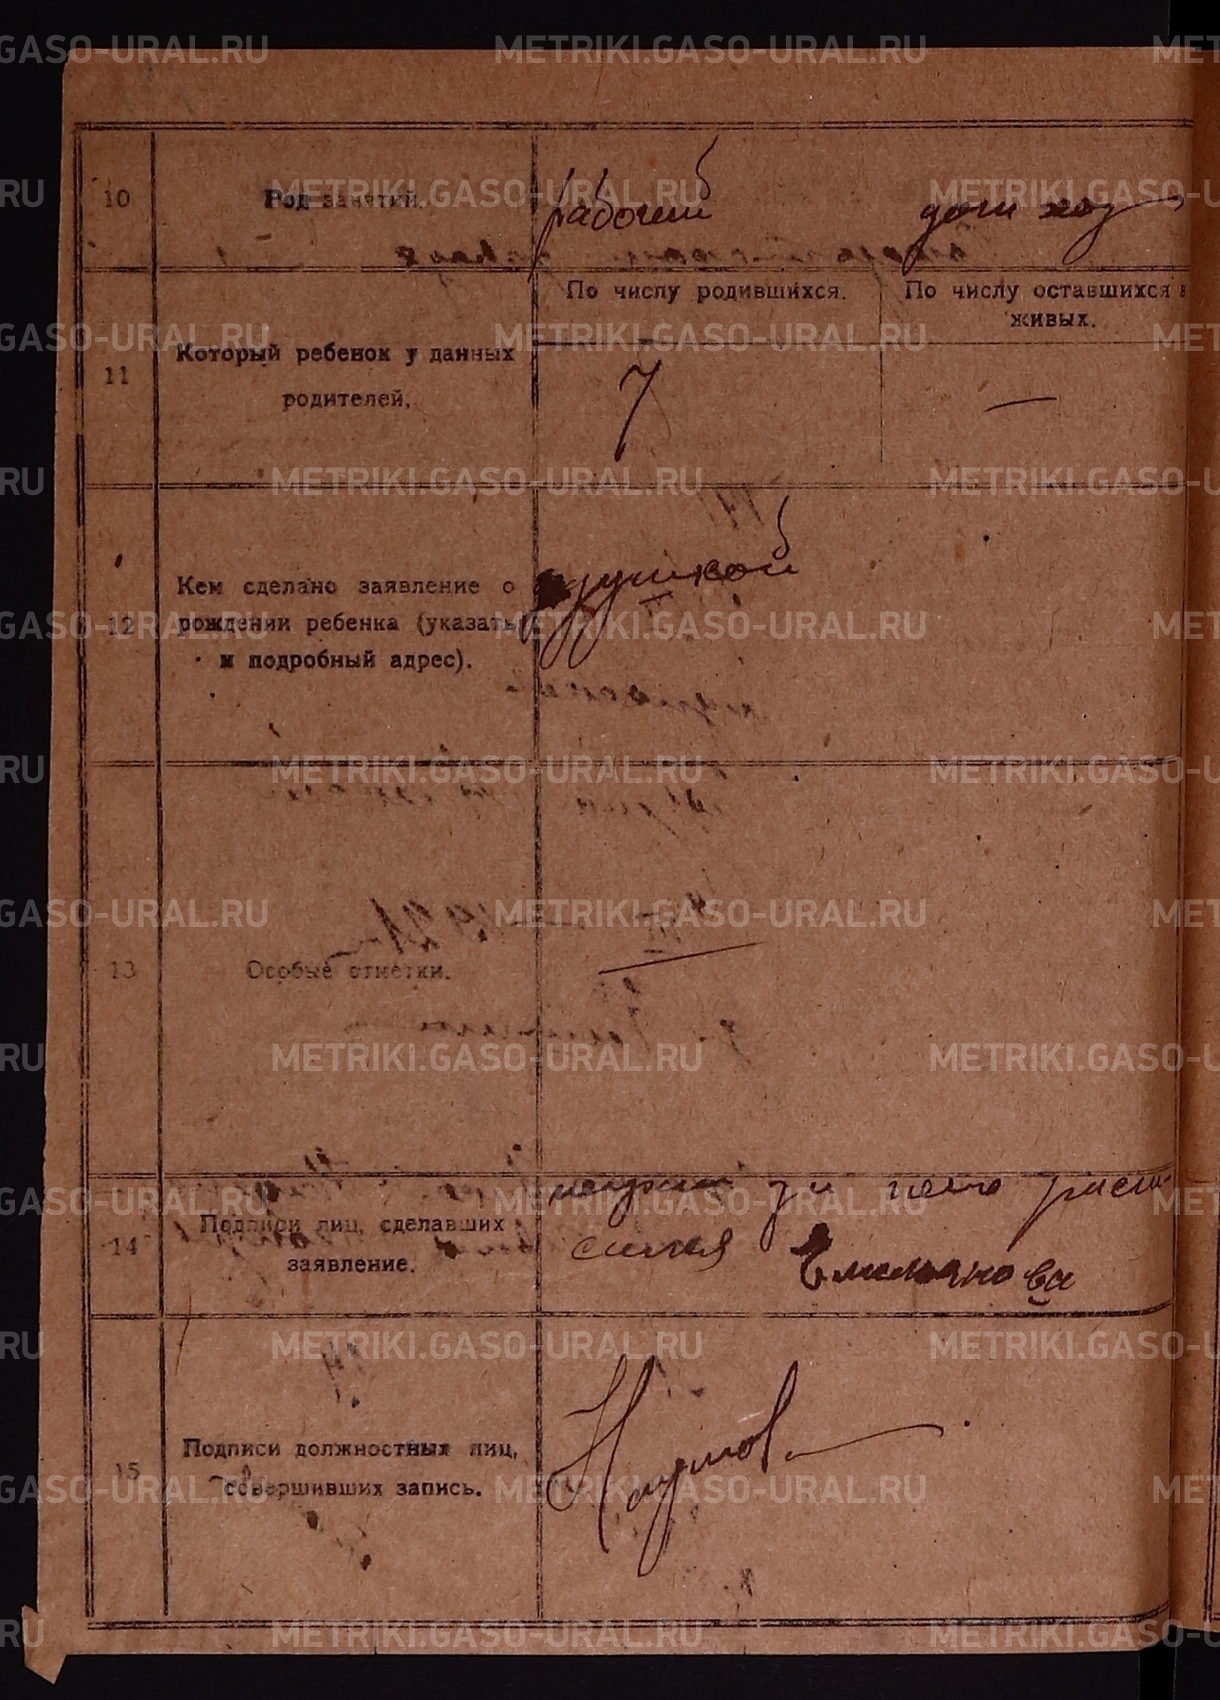 METRIKI.GASO-URAL.RU
10
Род занятий.
рабочий
дом хоз
11
Который ребенок у данных
родителей.
По числу родившихся.
По числу оставшихся в
живых.
7
—
12
Кем сделано заявление о
рождении ребенка (указать
и подробный адрес).
13
Особые отметки.
14
Подписи лиц, сделавших
заявление.
за
Емельянова
15
Подписи должностных лиц,
совершивших запись.
Наумов